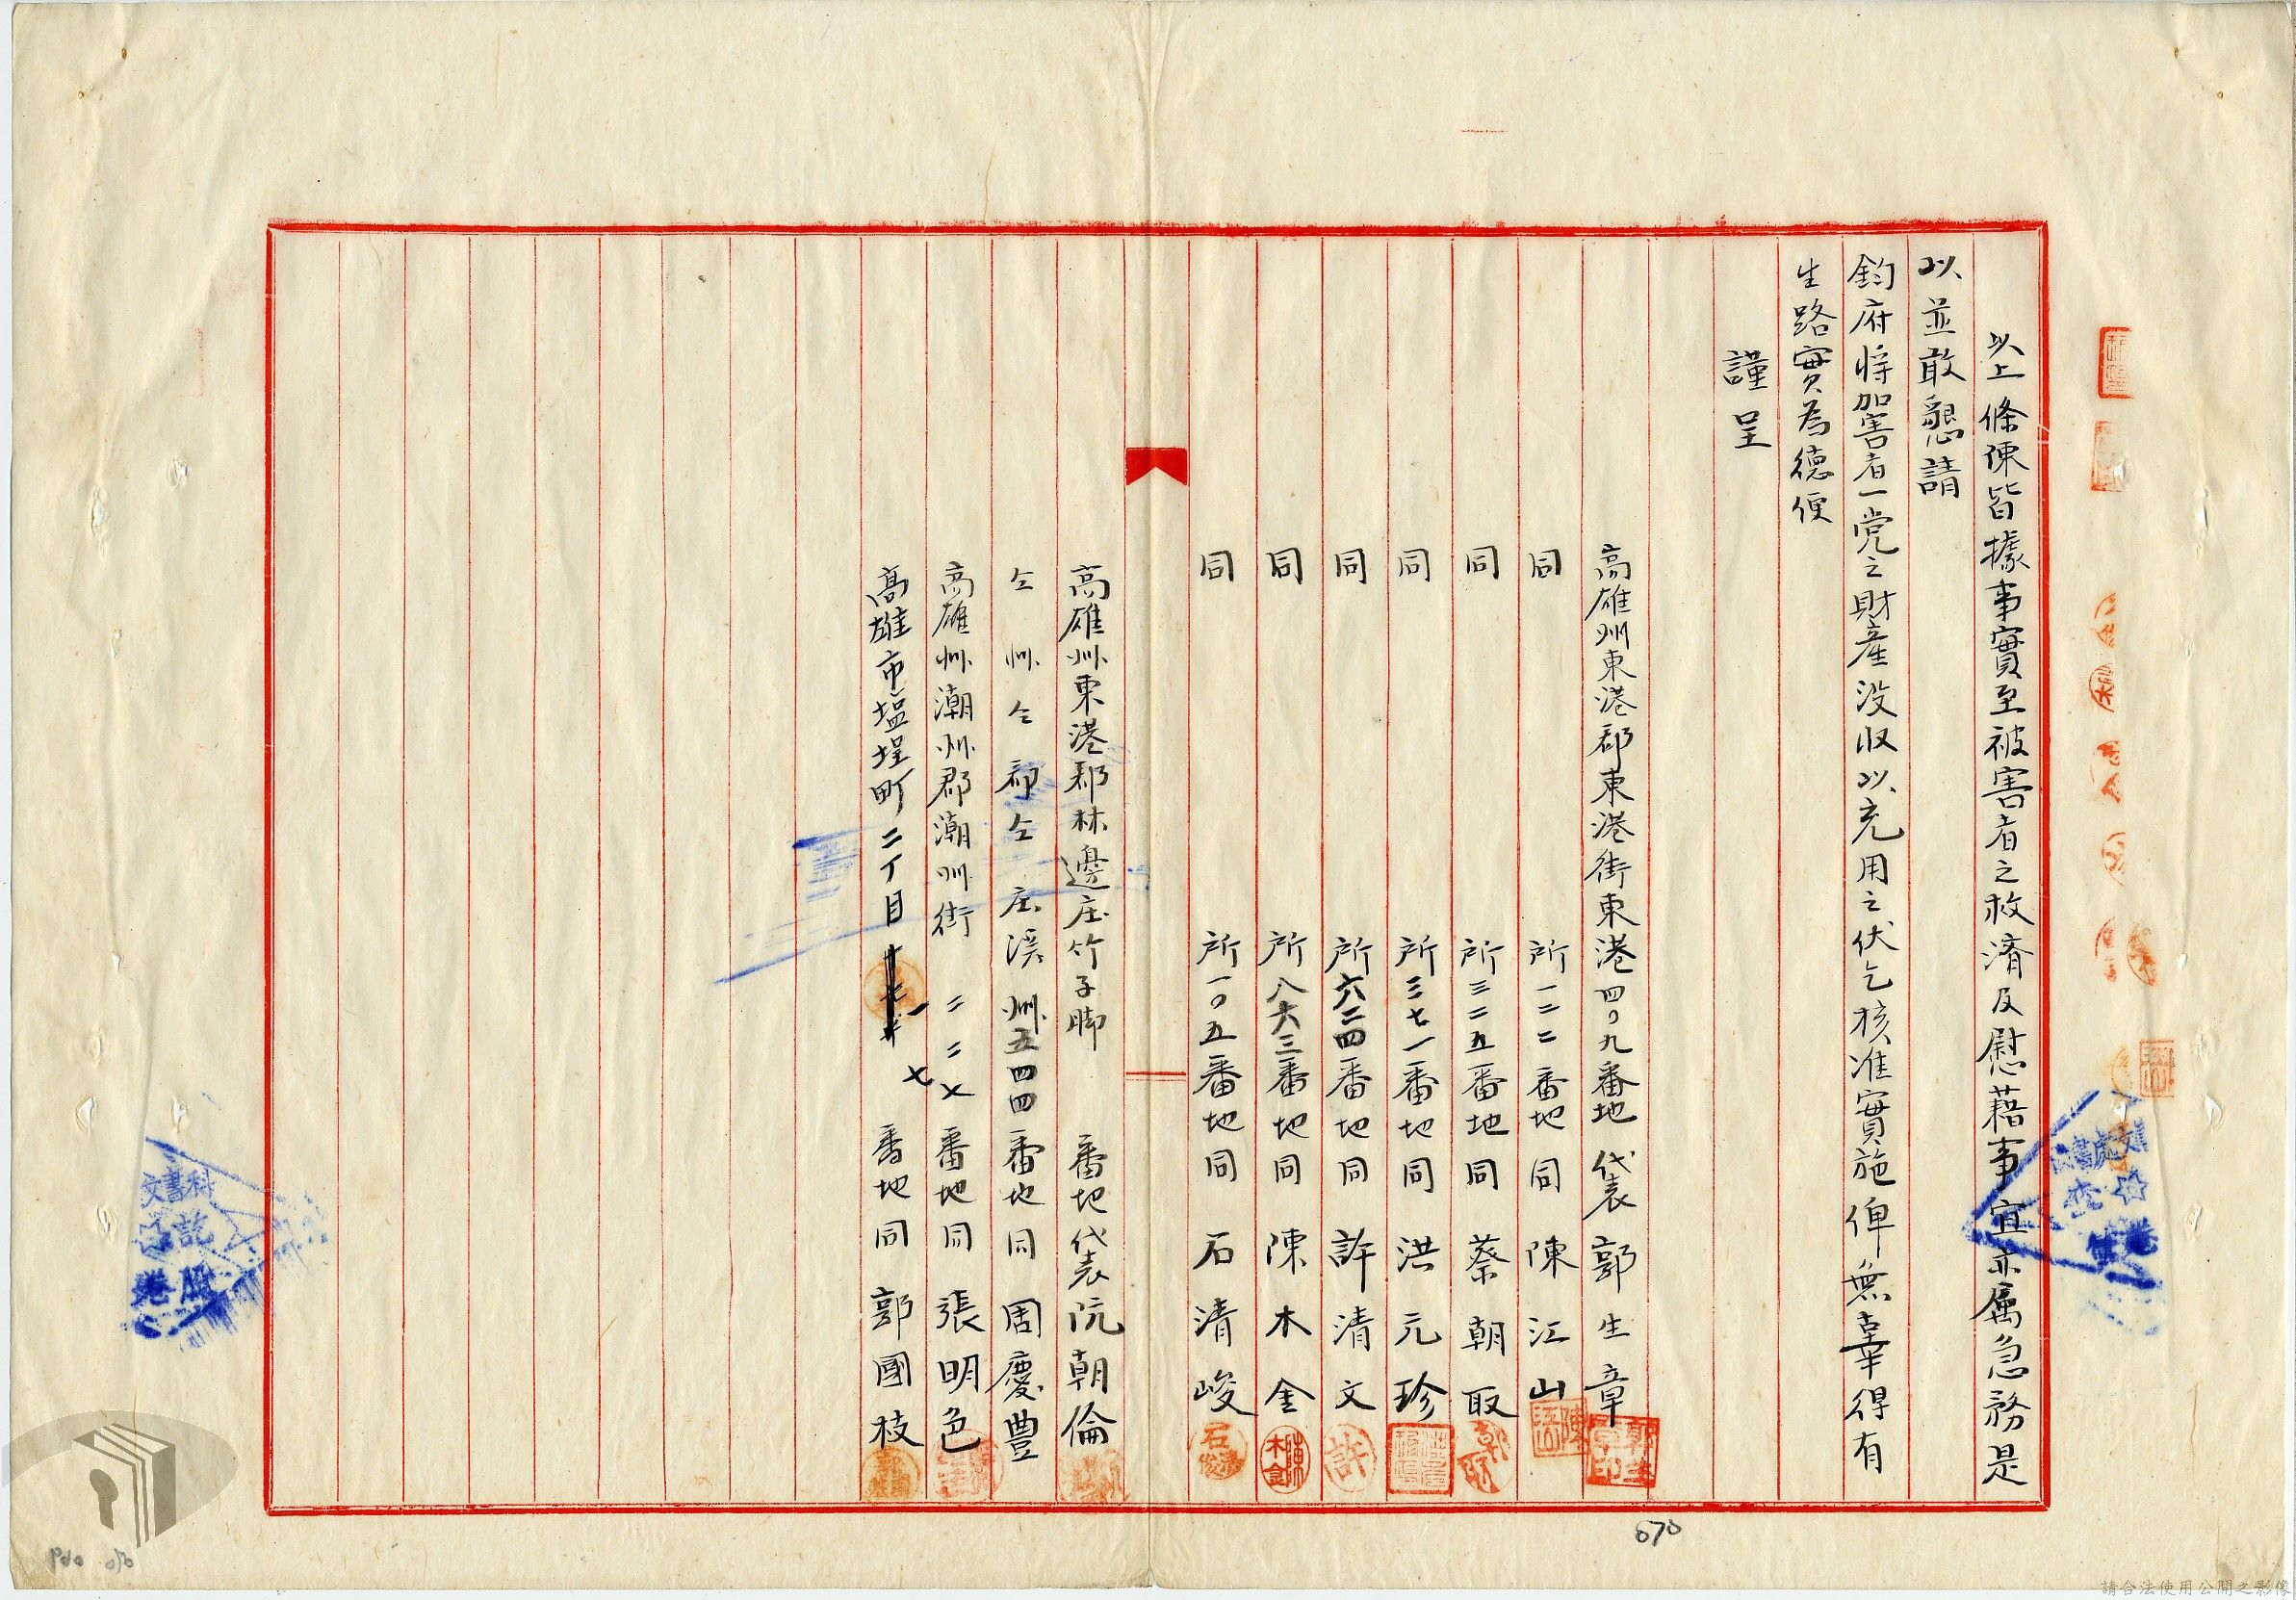 以上條陳皆據事實至被害者之救済及慰藉事宜亦屬急務是
以並敢懇請
鈞府將加害者一党之財産没收以充用之伏乞核准實施俾無辜得有
生路實為德便
謹呈
高雄州東港郡東港街東港四〇九番地 代表 郭生章
同 所一二二番地 同 陳江山
同 所三二五番地 同 蔡朝取
同 所三七一番地 同 洪元珍
同 所六二四番地 同 許清文
同 所八六三番地 同 陳木金
同 所一〇五番地 同 石清峻
高雄州東港郡林邊庄竹子脚 番地 代表 阮朝倫
仝州仝郡仝庄溪州五四四番地 同 周慶豊
高雄州潮州郡潮州街 二二七 番地 同 張明色
高雄市塩埕町二丁目 一七 番地 同 郭國枝
許
陳木金
石清峻
文書科
070
請合法使用公開之影像